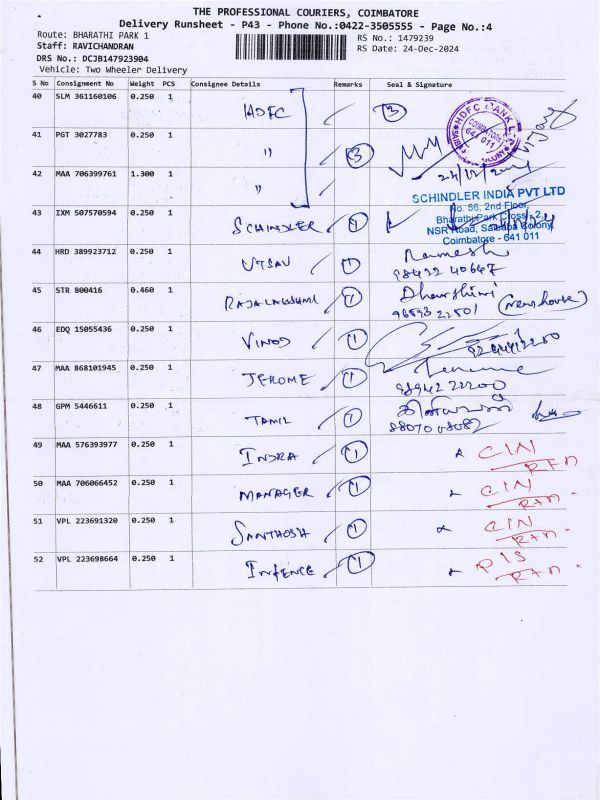 THE PROFESSIONAL COURIERS, COIMBATORE
Delivery Runsheet - P43 - Phone No.:0422-3505555 - Page No.:4
Route: BHARATHI PARK 1 RS No.: 1479239
Staff: RAVICHANDRAN RS Date: 24-Dec-2024
DRS No.: DCJB147923904
Vehicle: Two Wheeler Delivery
S No Consignment No Weight PCS Consignee Details Remarks Seal & Signature
40 SLM 361160106 0.250 1 HDFC 3
HDFC BANK
COIMBATORE
641 011
41 PGT 3027783 0.250 1 " 3
24/12/2024
42 MAA 706399761 1.300 1 "
SCHINDLER INDIA PVT LTD
No. 56, 2nd Floor,
Bharathi Park Cross - 2,
NSR Road, Saibaba Colony,
Coimbatore - 641 011
43 IXM 507570594 0.250 1 SCHINDLER 1
44 HRD 389923712 0.250 1 UTSAV 1 Ramesh
98422 40647
45 STR 800416 0.460 1 RAJALAKSHMI 1 Dharshini
96593 22501 (News house)
46 EDQ 15055436 0.250 1 VINOD 1
47 MAA 868101945 0.250 1 JEROME 1
98942 22200
48 GPM 5446611 0.250 1 TAMIL 1
88070 08082
49 MAA 576393977 0.250 1 INDRA 1 CIN
RTN
50 MAA 706066452 0.250 1 MANAGER 1 CIN
RTN
51 VPL 223691320 0.250 1 SANTHOSH 1 CIN
RTN
52 VPL 223698664 0.250 1 INFENCE 1 PIS
RTN